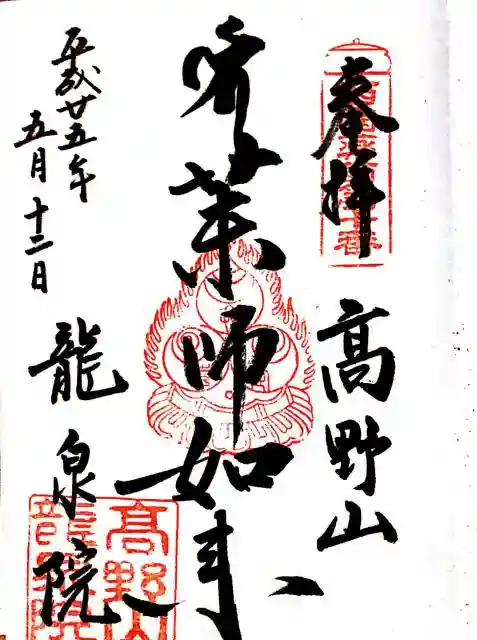 奉拝
高野山
薬師如来
平成廿五年
五月十二日
龍泉院
高野山
龍泉院